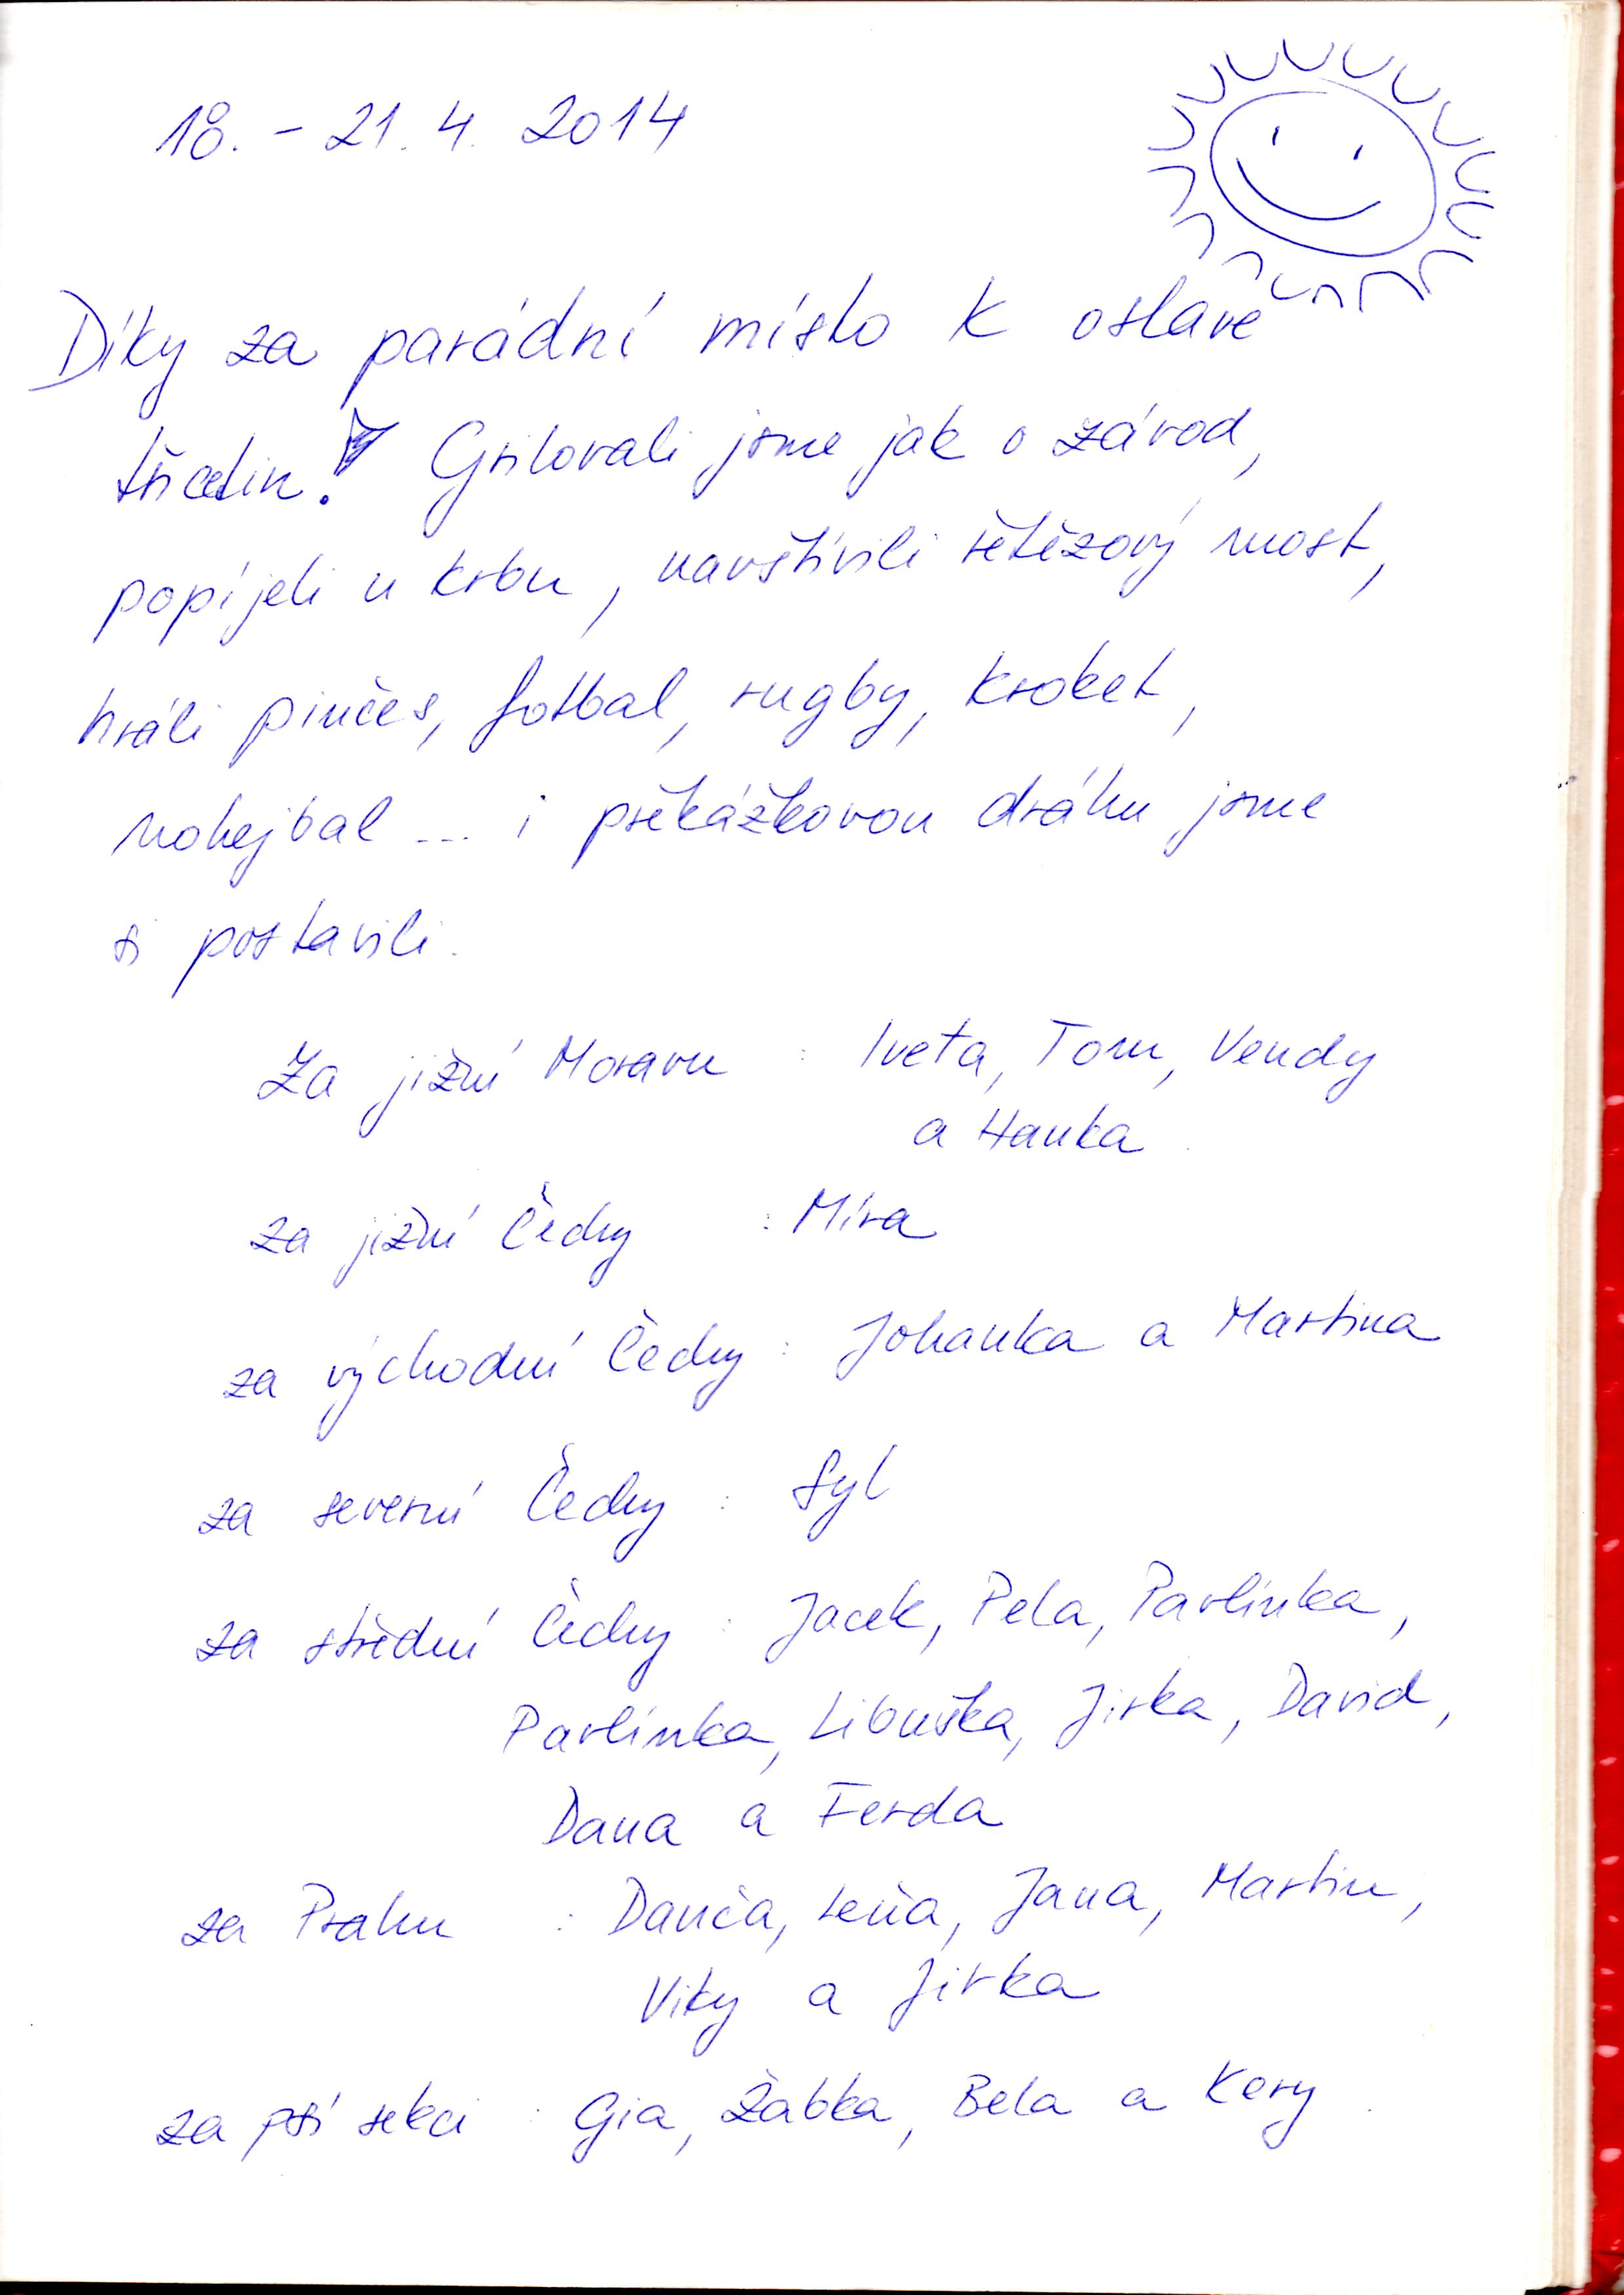 18. - 21. 4. 2014
Díky za parádní místo k oslavě
třicetin! Grilovali jsme jak o závod,
popíjeli u krbu, navštívili řetězový most,
hráli pinčes, fotbal, rugby, kroket,
nohejbal --- i překážkovou dráhu jsme
si postavili.
Za jižní Moravu : Iveta, Tom, Vendy
a Hanka
za jižní Čechy : Míra
za východní Čechy : Johanka a Martina
za severní Čechy : Syl
za střední Čechy : Jacek, Pela, Pavlínka,
Pavlínka, Libuška, Jirka, David,
Dana a Ferda
za Prahu : Danča, Leňa, Jana, Martin,
Viky a Jirka
za psí sekci : Gia, Žabka, Bela a Kery